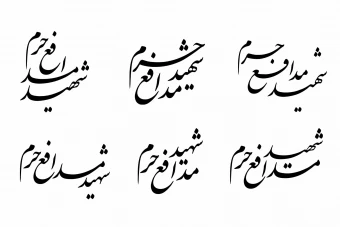 شهید مدافع حرم
شهید مدافع حرم
شهید مدافع حرم
شهید مدافع حرم
شهید مدافع حرم
شهید مدافع حرم